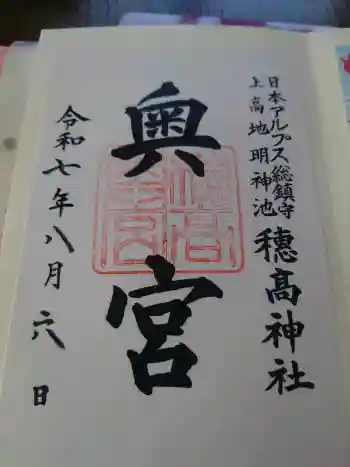 日本アルプス総鎮守
上高地明神池
穂高神社
奥宮
令和七年八月六日